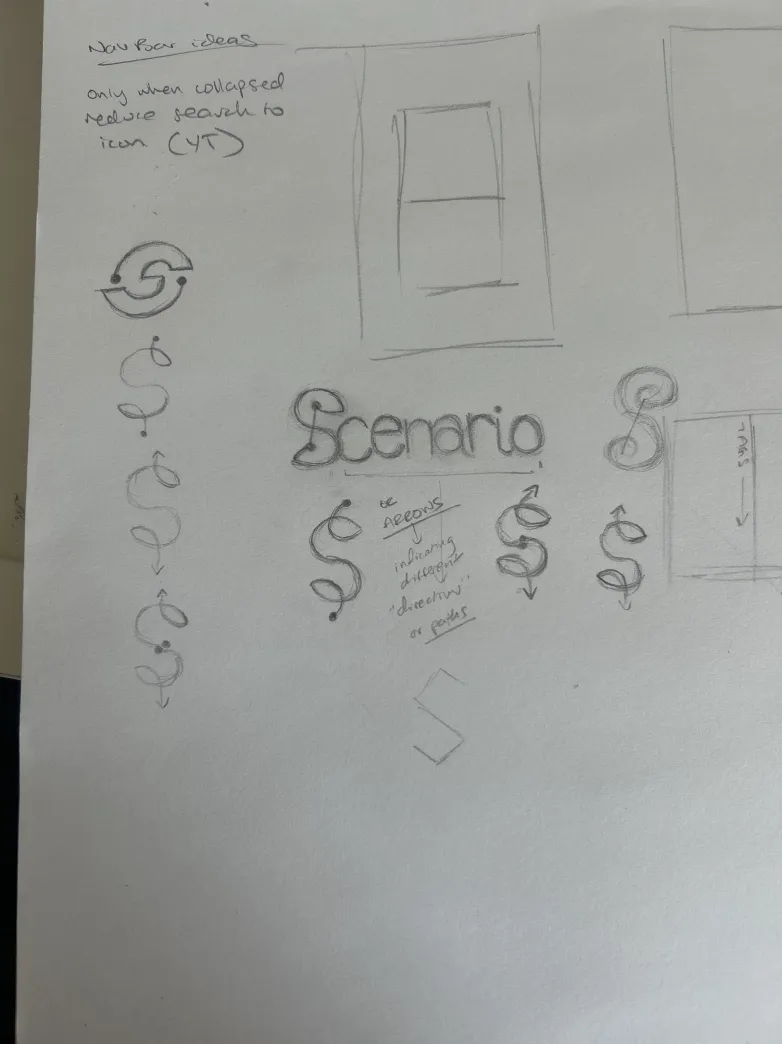 Nav Bar ideas
only when collapsed
reduce search to
icon (YT)
Scenario
or
ARROWS
indicating
different
"directions"
or paths
TAGS